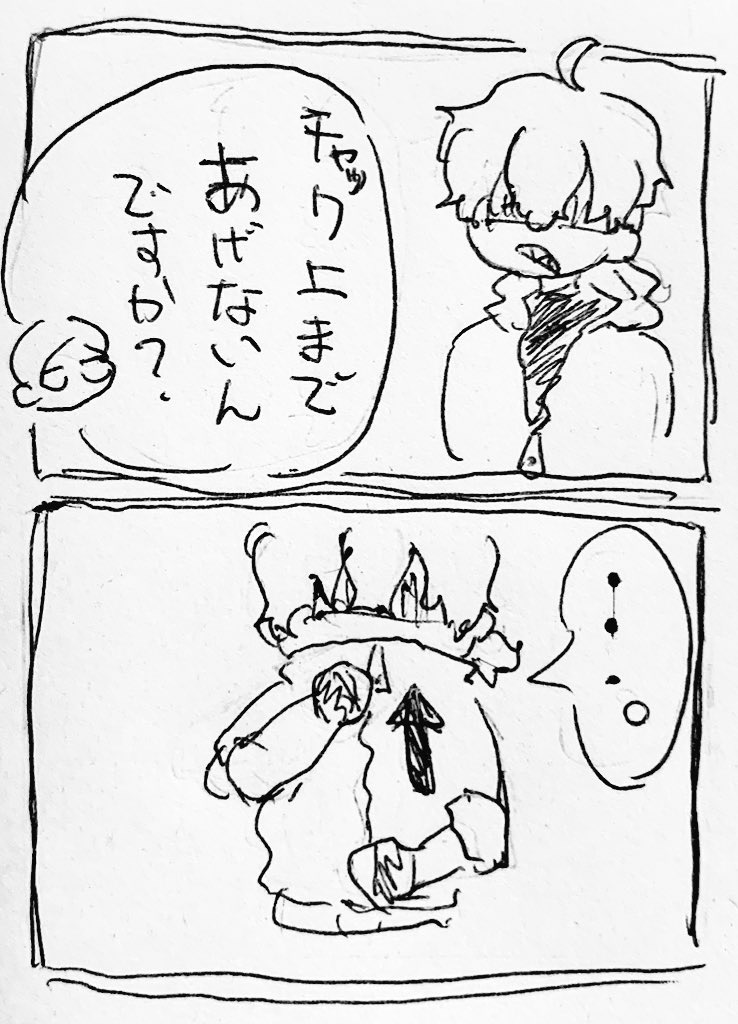 チャック上まで
あげないん
ですか?
・・・。